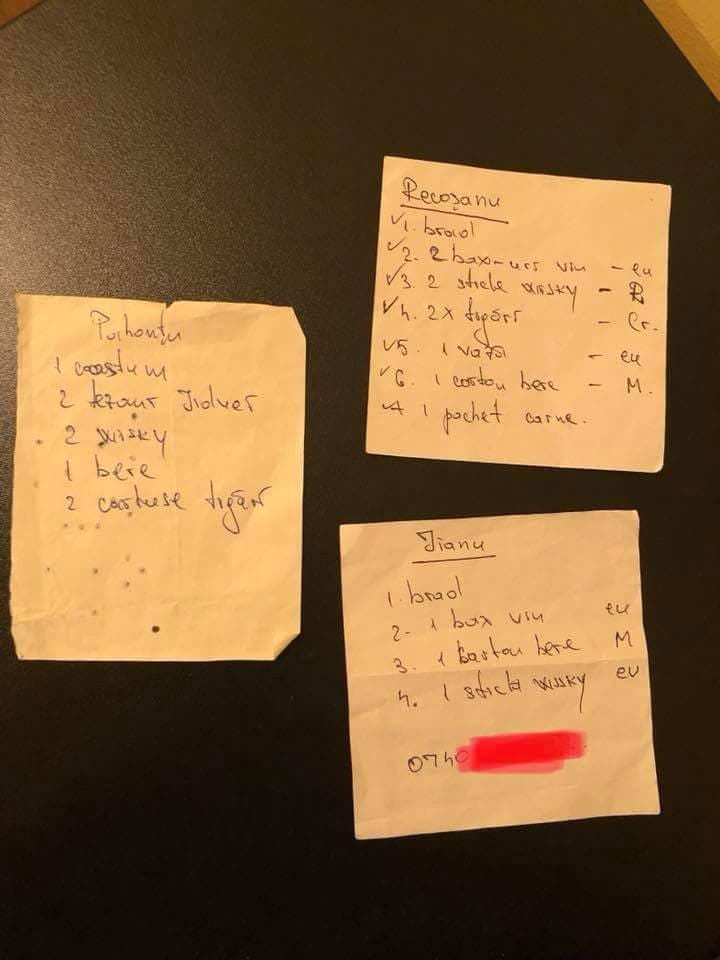 Puihonțu
1 costum
2 tezaur Jidvei
2 wisky
1 bere
2 cartuse țigări
Recoșanu
✓1. brad
✓2. 2 bax-uri vin - eu
✓3. 2 sticle wisky - R
✓4. 2x țigări - Cr.
✓5. 1 vază - eu
✓6. 1 carton bere - M.
✓7 1 pachet carne.
Jianu
1. brad
2. 1 bax vin eu
3. 1 karton bere M
4. 1 sticlă wissky eu
0740